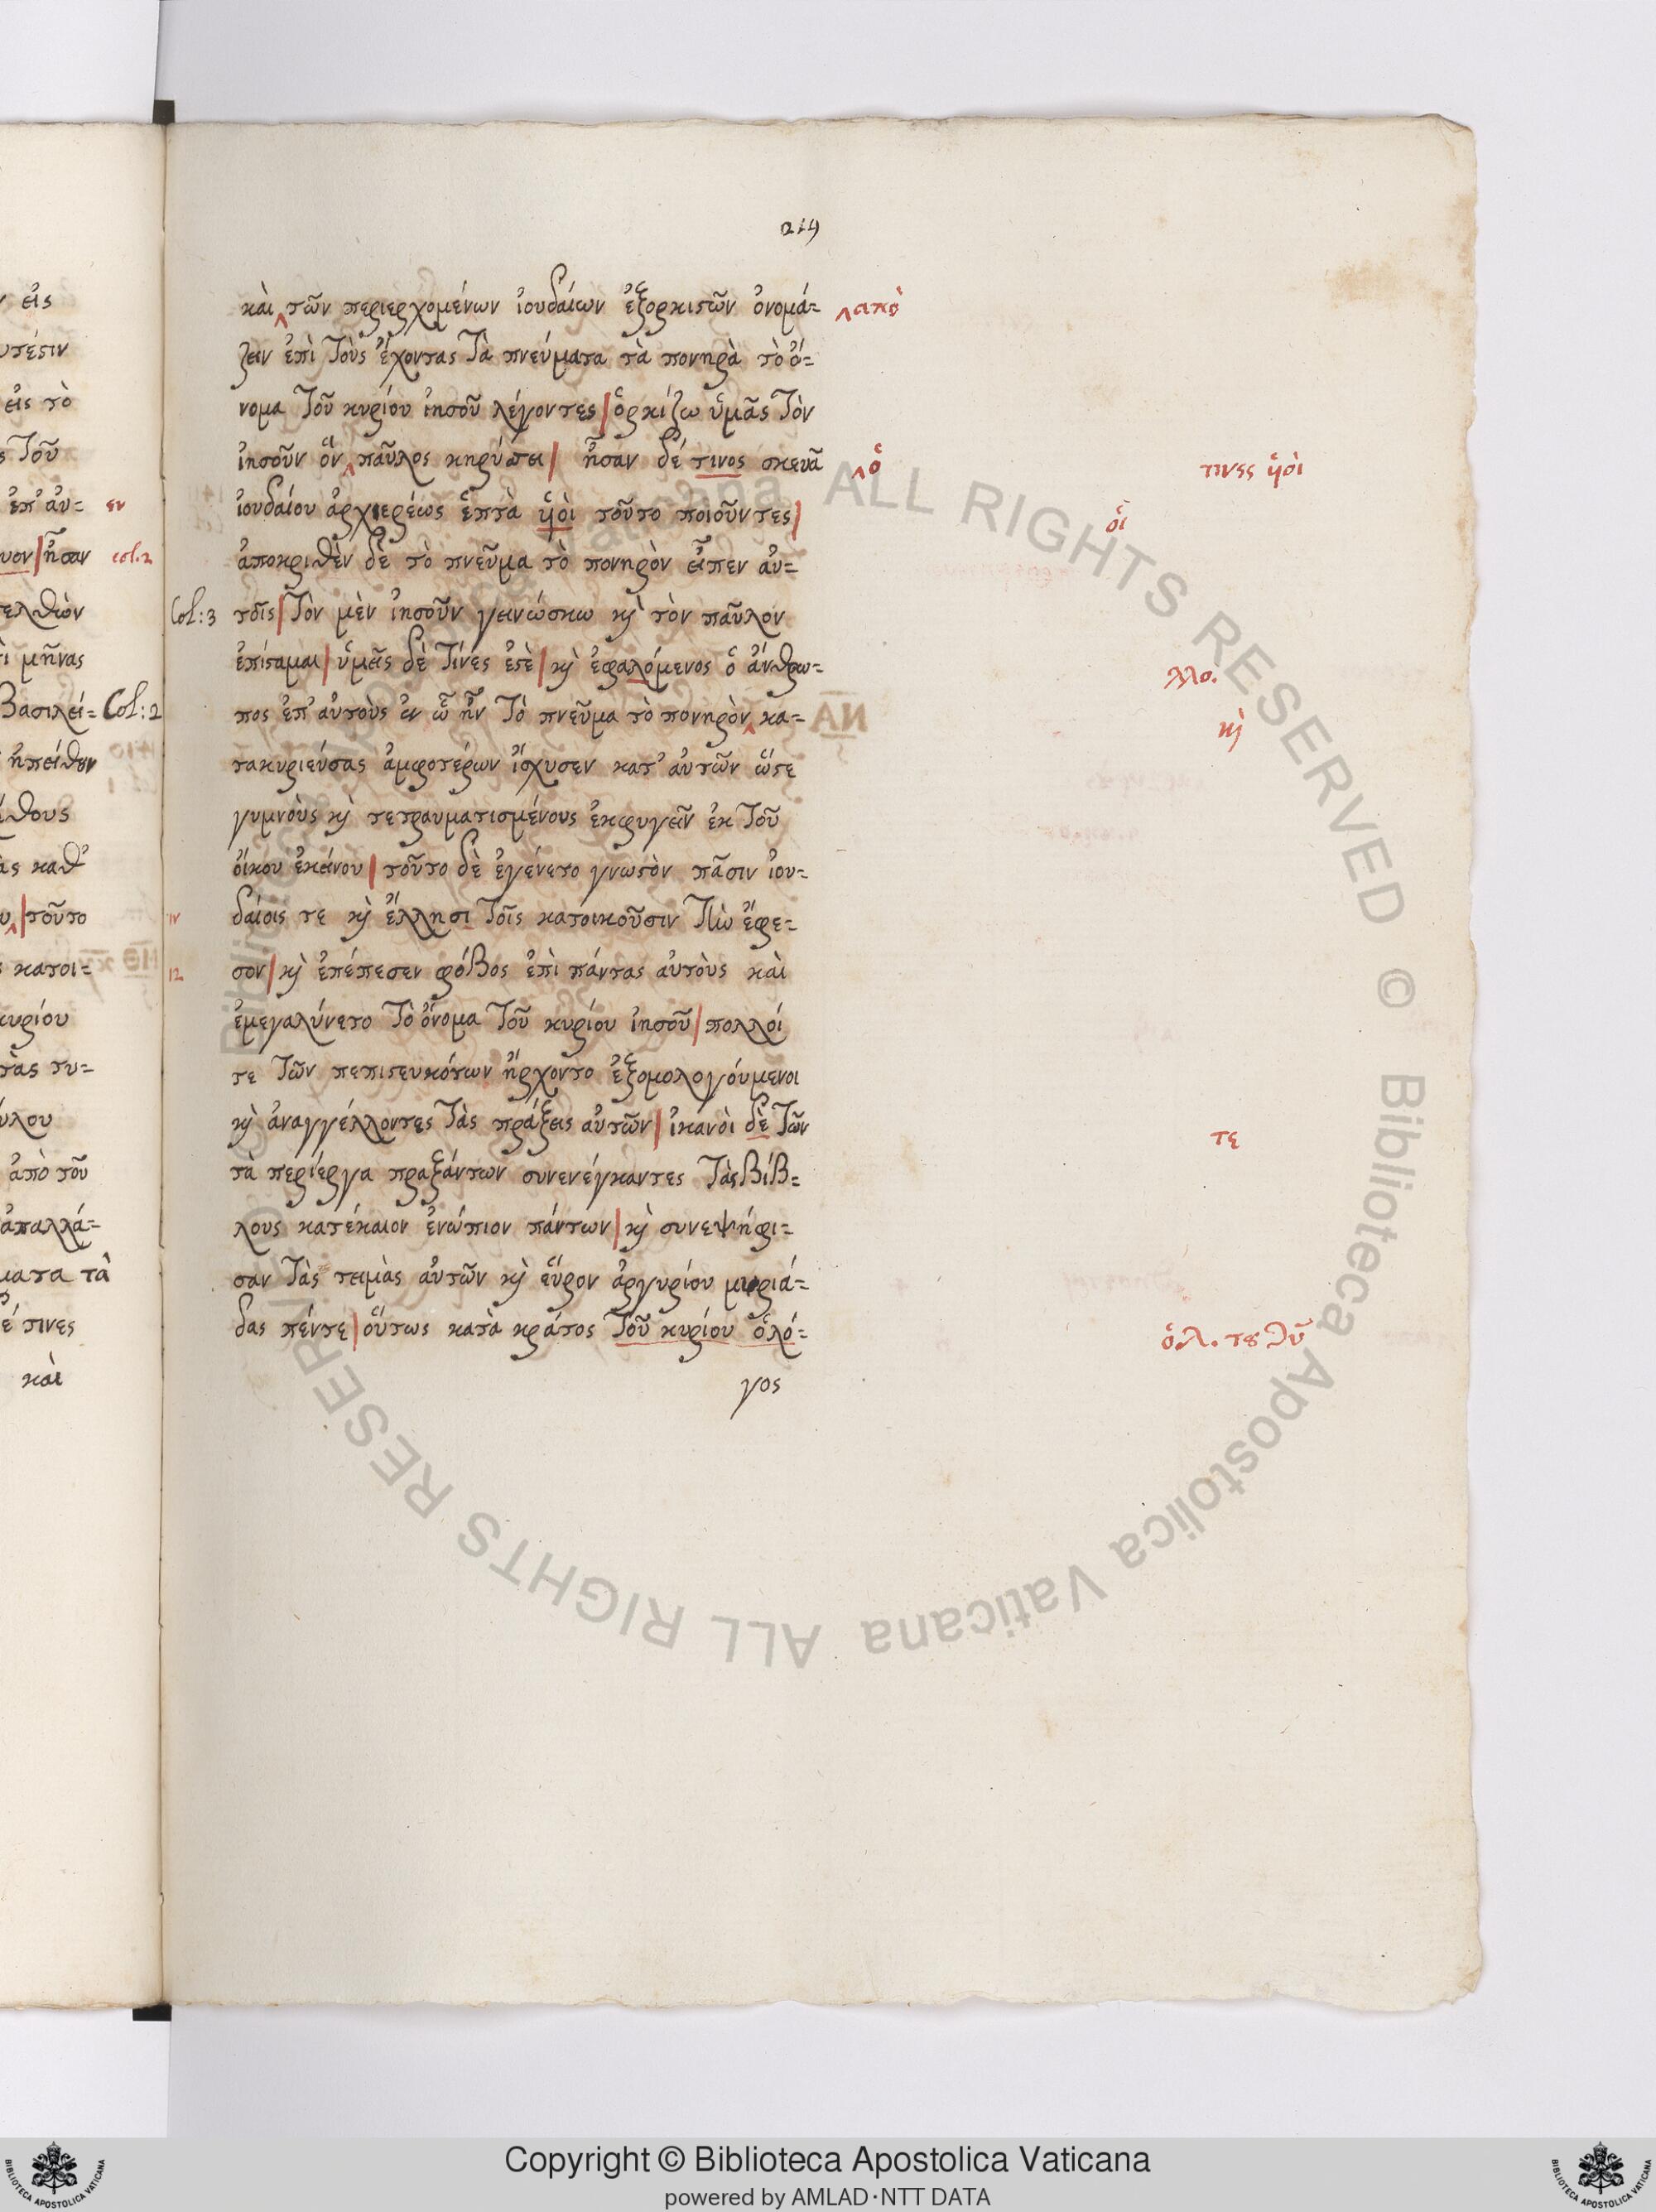 219
καὶ ‸ τῶν περιερχομένων ἰουδαίων ἐξορκιστῶν ὀνομά= ‸ απὸ
ζειν ἐπὶ τοὺς ἔχοντας τὰ πνεύματα τὰ πονηρὰ τὸ ὄ=
νομα τοῦ κυρίου ἰησοῦ λέγοντες | ὁρκίζω ὑμᾶς τὸν
ἰησοῦν ὃν ‸ παῦλος κηρύσσει | ἦσαν δέ τινος σκευᾶ ‸ ὁ τινες ὑοὶ
ἰουδαίου ἀρχιερέως ἑπτὰ ὑοὶ τοῦτο ποιοῦντες | οἱ
ἀποκριθὲν δὲ τὸ πνεῦμα τὸ πονηρὸν εἶπεν αὐ=
Col: 3 τοῖς | τὸν μὲν ἰησοῦν γεινώσκω κὶ τὸν παῦλον
ἐπίσταμαι | ὑμεῖς δὲ τίνες ἐστὲ | κὶ ἐφαλόμενος ὁ ἄνθρω= λλο.
πος ἐπ' αὐτοὺς ἐν ᾧ ἦν τὸ πνεῦμα τὸ πονηρὸν ‸ κα= κὶ
τακυριεύσας ἀμφοτέρων ἴσχυσεν κατ' αὐτῶν ὥστε
γυμνοὺς κὶ τετραυματισμένους ἐκφυγεῖν ἐκ τοῦ
οἴκου ἐκείνου | τοῦτο δὲ ἐγένετο γνωστὸν πᾶσιν ἰου=
δαίοις τε κὶ ἕλλησι τοῖς κατοικοῦσιν τὴν ἔφε=
12 σον | κὶ ἐπέπεσεν φόβος ἐπὶ πάντας αὐτοὺς καὶ
ἐμεγαλύνετο τὸ ὄνομα τοῦ κυρίου ἰησοῦ | πολλοί
τε τῶν πεπιστευκότων ἤρχοντο ἐξομολογούμενοι
κὶ ἀναγγέλλοντες τὰς πράξεις αὐτῶν | ἱκανοὶ δὲ τῶν τε
τὰ περίεργα πραξάντων συνενέγκαντες τὰς βίβ=
λους κατέκαιον ἐνώπιον πάντων | κὶ συνεψήφι=
σαν τὰς τειμὰς αὐτῶν κὶ εὗρον ἀργυρίου μυριά=
δας πέντε | οὕτως κατὰ κράτος τοῦ κυρίου ὁ λό= ὁ λ. τȣ θῦ
γος
εἰς
εἰς τὸ
τοῦ
ἐπ' αὐ= εν
ἦσαν col. 2
μῆνας
Βασιλεί= Col: 2
ἠπείθουν
καθ'
τοῦτο
κατοι=
κυρίου
ἀπὸ τοῦ
ἀπαλλά=
τὰ
τινες
καὶ
Copyright © Biblioteca Apostolica Vaticana
powered by AMLAD・NTT DATA
BIBLIOTECA APOSTOLICA VATICANA
BIBLIOTECA APOSTOLICA VATICANA
© Biblioteca Apostolica Vaticana ALL RIGHTS RESERVED © Biblioteca Apostolica Vaticana ALL RIGHTS RESERVED